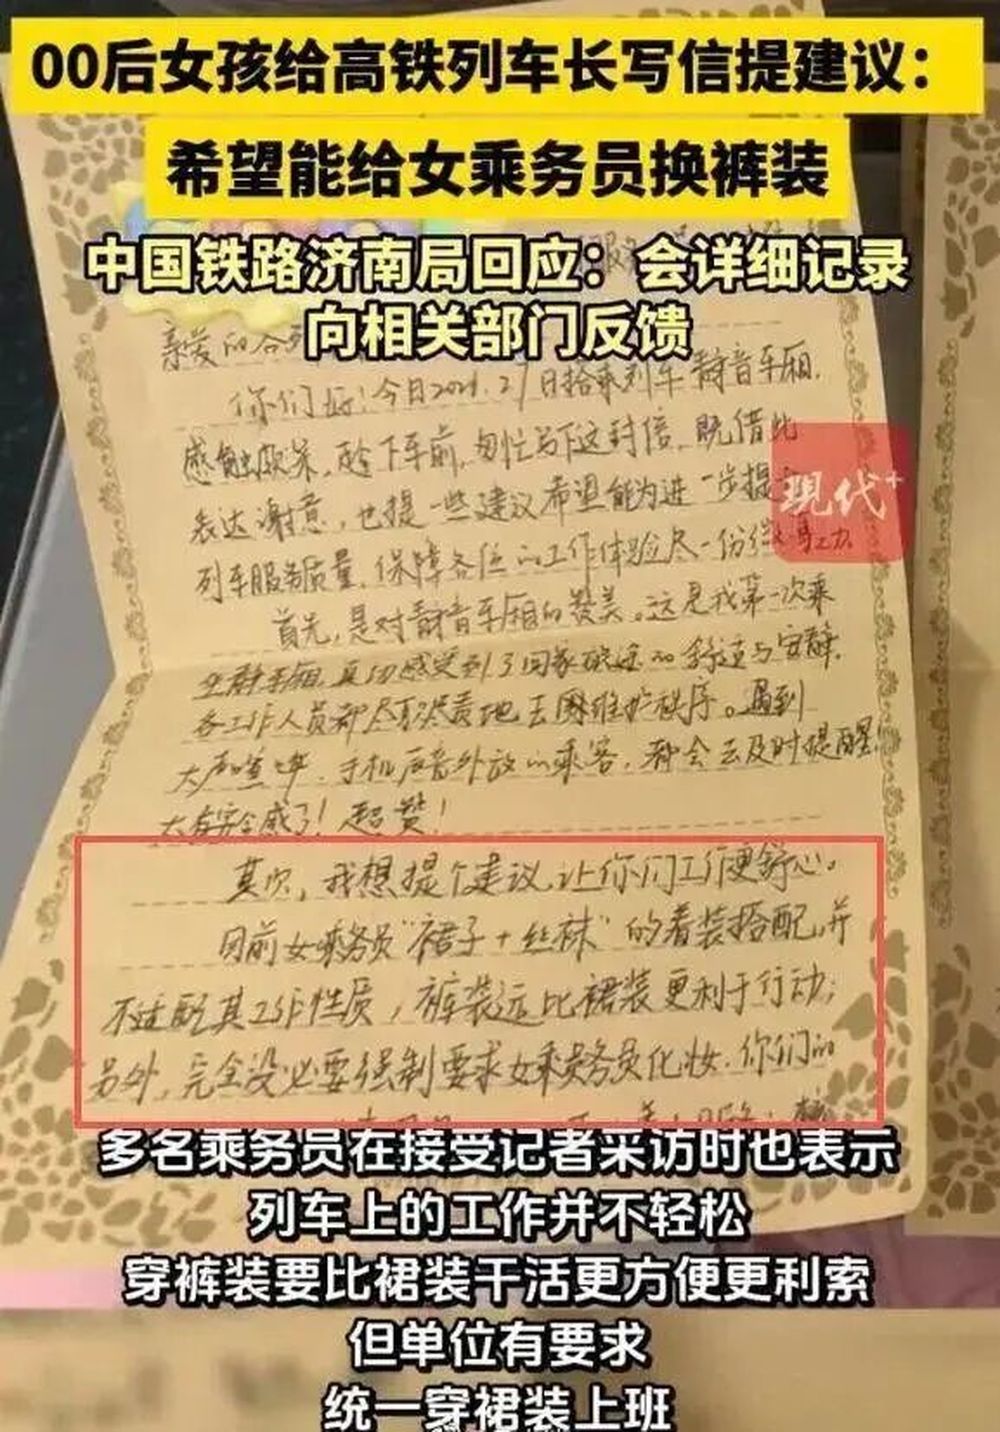 00后女孩给高铁列车长写信提建议：
希望能给女乘务员换裤装
中国铁路济南局回应：会详细记录
向相关部门反馈
亲爱的
你们好！今日2024.2 日搭乘列车静音车厢，
感触颇深，趁下车前，匆忙写下这封信，既借此
表达谢意，也提一些建议希望能为进一步提
现代+
列车服务质量，保障各位的工作体验尽一份绵薄之力
首先，是对静音车厢的赞美。这是我第一次乘
坐静车厢，真切感受到了回家旅途的舒适与安静，
各工作人员都尽职尽责地去维护秩序。遇到
大声喧哗、手机声音外放的乘客，都会去及时提醒！
太有安全感了！超赞！
其次，我想提个建议，让你们工作更舒心。
目前女乘务员“裙子+丝袜”的着装搭配，并
不适配其工作性质，裤装远比裙装更利于行动；
另外，完全没必要强制要求女乘务员化妆，你们的
多名乘务员在接受记者采访时也表示
列车上的工作并不轻松
穿裤装要比裙装干活更方便更利索
但单位有要求
统一穿裙装上班